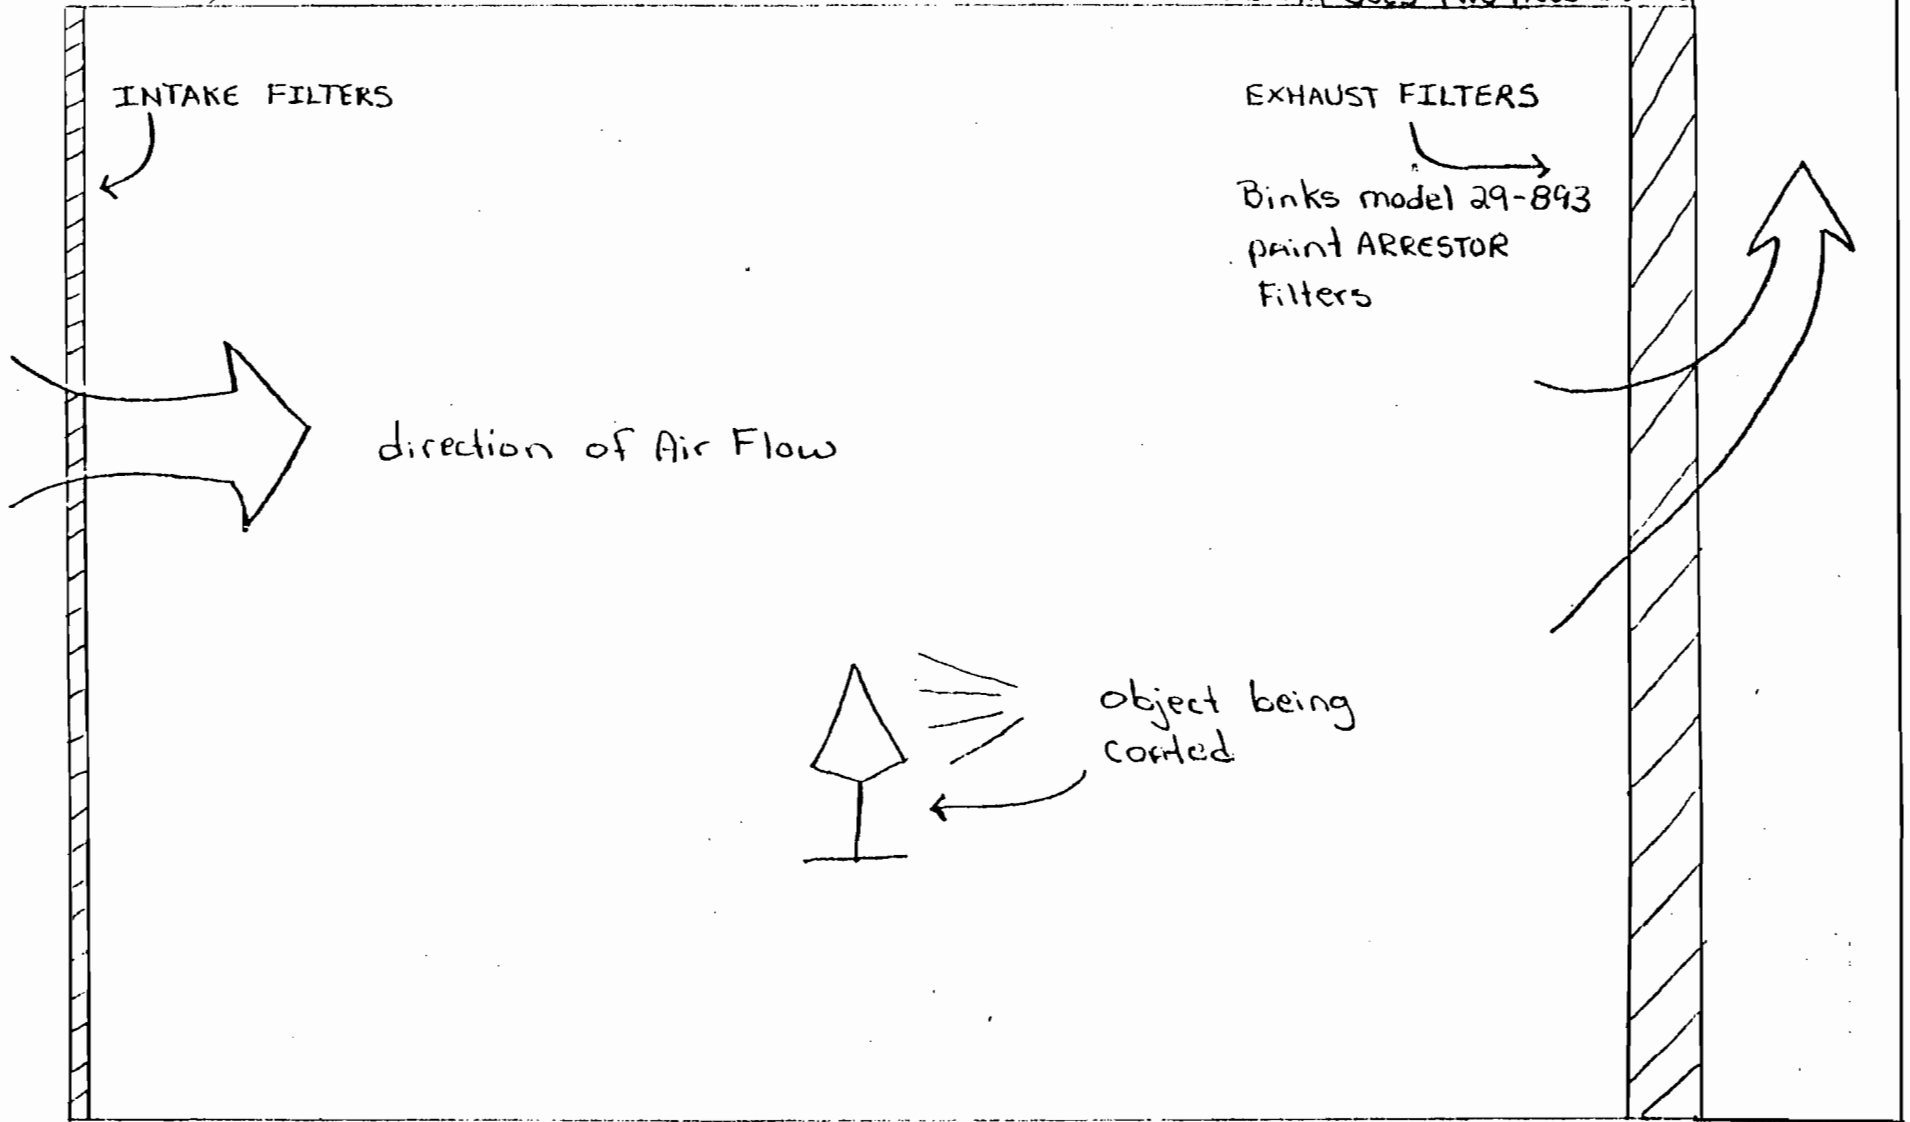 INTAKE FILTERS
EXHAUST FILTERS
Binks model 29-893
paint ARRESTOR
Filters
direction of Air Flow
object being
coated